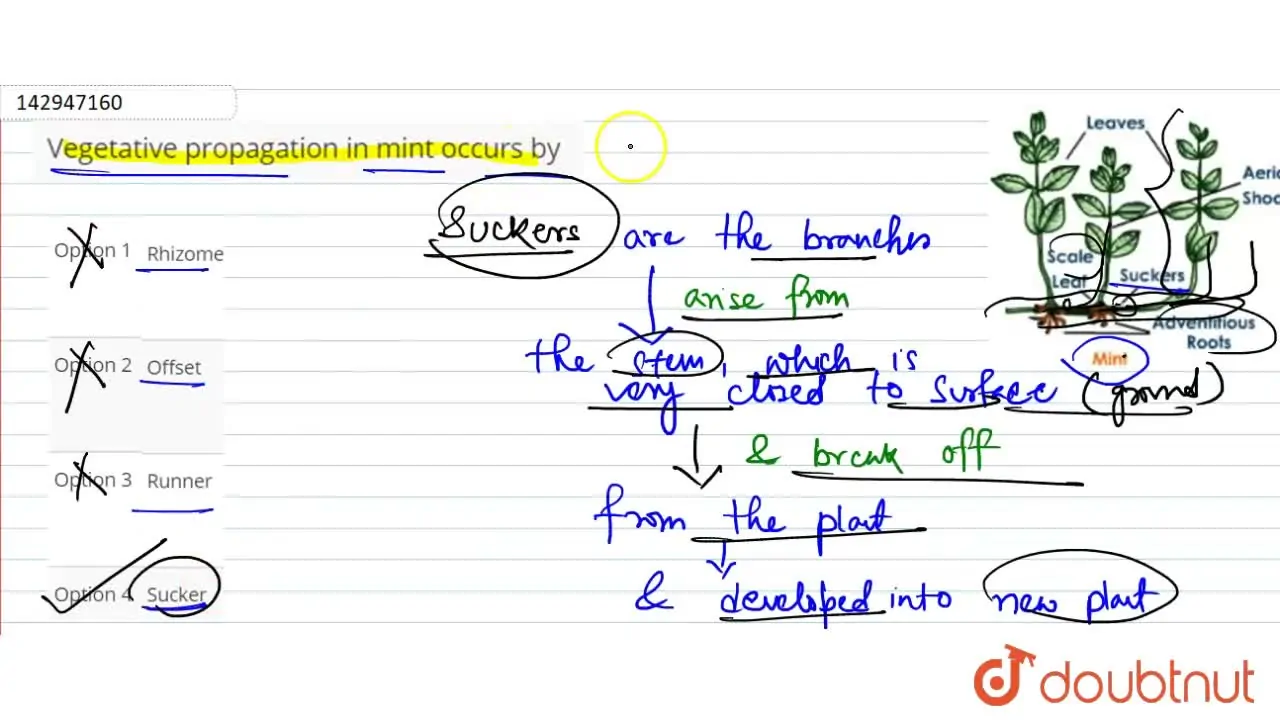 142947160
Vegetative propagation in mint occurs by
Option 1 Rhizome
Option 2 Offset
Option 3 Runner
Option 4 Sucker
Suckers are the branches
arise from
the stem, which is
very closed to surface (ground)
& break off
from the plant
& developed into new plant
Leaves
Aeria
Shoo
Scale
Leaf
Suckers
Adventitious
Roots
Mint
doubtnut